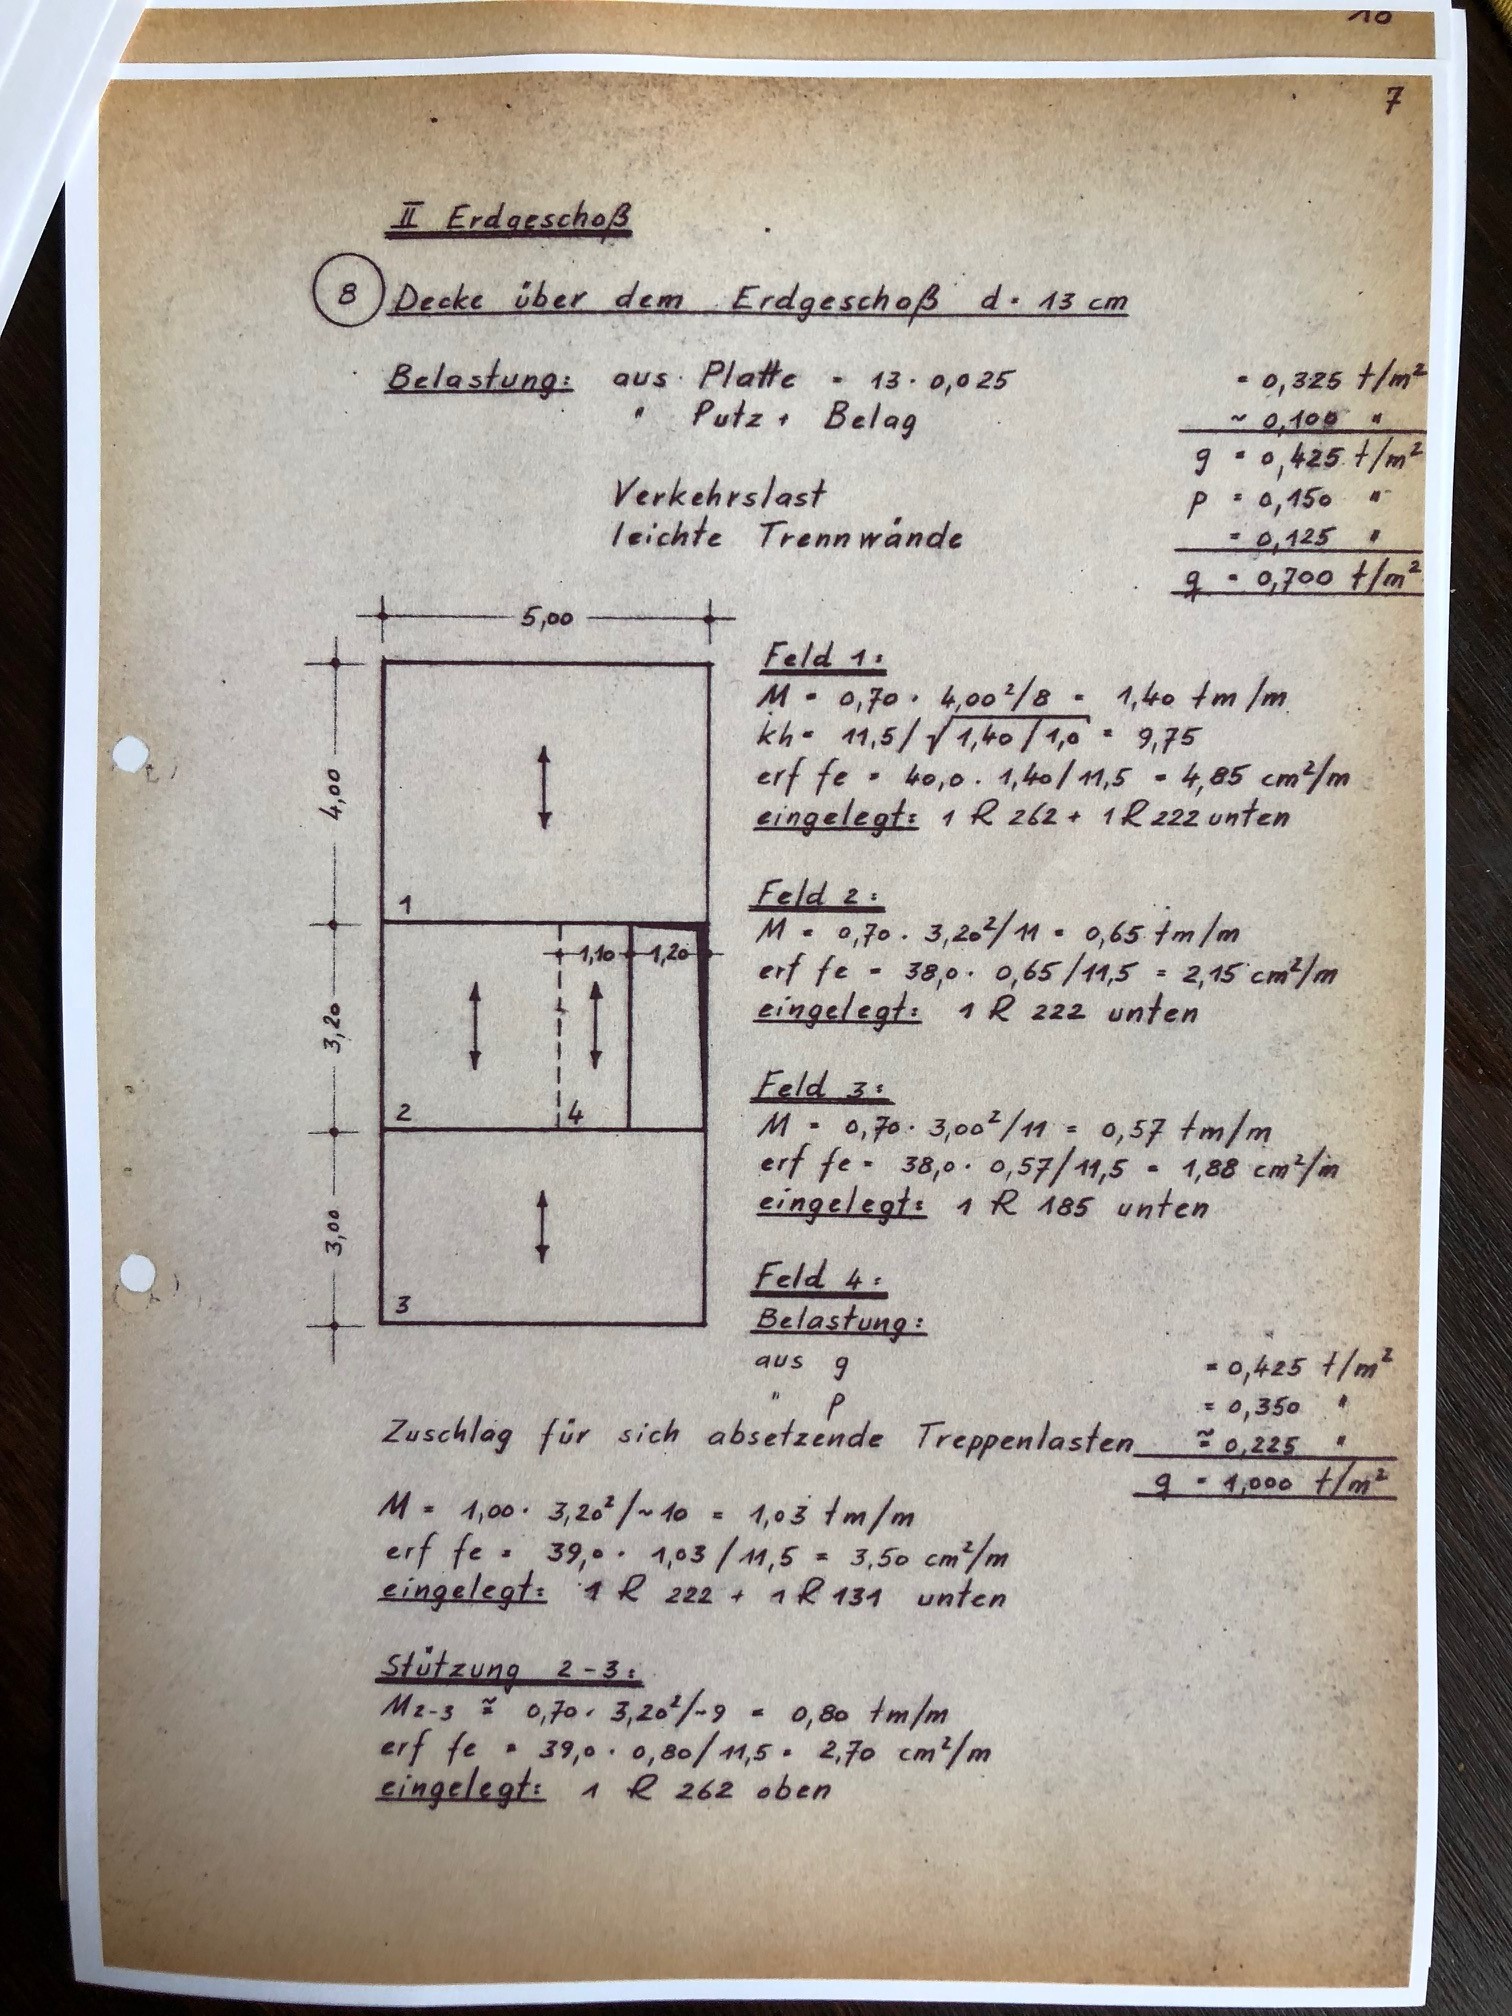 7
II Erdgeschoß
8 Decke über dem Erdgeschoß d = 13 cm
Belastung: aus Platte = 13 · 0,025 = 0,325 t/m²
" Putz + Belag ~ 0,100 "
g = 0,425 t/m²
Verkehrslast p = 0,150 "
leichte Trennwände = 0,125 "
q = 0,700 t/m²
5,00
4,00
1
1,10 1,20
3,20
2 4
3,00
3
Feld 1:
M = 0,70 · 4,00²/8 = 1,40 tm/m
kh = 11,5/√1,40/1,0 = 9,75
erf fe = 40,0 · 1,40/11,5 = 4,85 cm²/m
eingelegt: 1 R 262 + 1 R 222 unten
Feld 2:
M = 0,70 · 3,20²/11 = 0,65 tm/m
erf fe = 38,0 · 0,65/11,5 = 2,15 cm²/m
eingelegt: 1 R 222 unten
Feld 3:
M = 0,70 · 3,00²/11 = 0,57 tm/m
erf fe = 38,0 · 0,57/11,5 = 1,88 cm²/m
eingelegt: 1 R 185 unten
Feld 4:
Belastung:
aus g = 0,425 t/m²
" p = 0,350 "
Zuschlag für sich absetzende Treppenlasten ≈ 0,225 "
q = 1,000 t/m²
M = 1,00 · 3,20²/~10 = 1,03 tm/m
erf fe = 39,0 · 1,03/11,5 = 3,50 cm²/m
eingelegt: 1 R 222 + 1 R 131 unten
Stützung 2-3:
M2-3 ≅ 0,70 · 3,20²/~9 = 0,80 tm/m
erf fe = 39,0 · 0,80/11,5 = 2,70 cm²/m
eingelegt: 1 R 262 oben